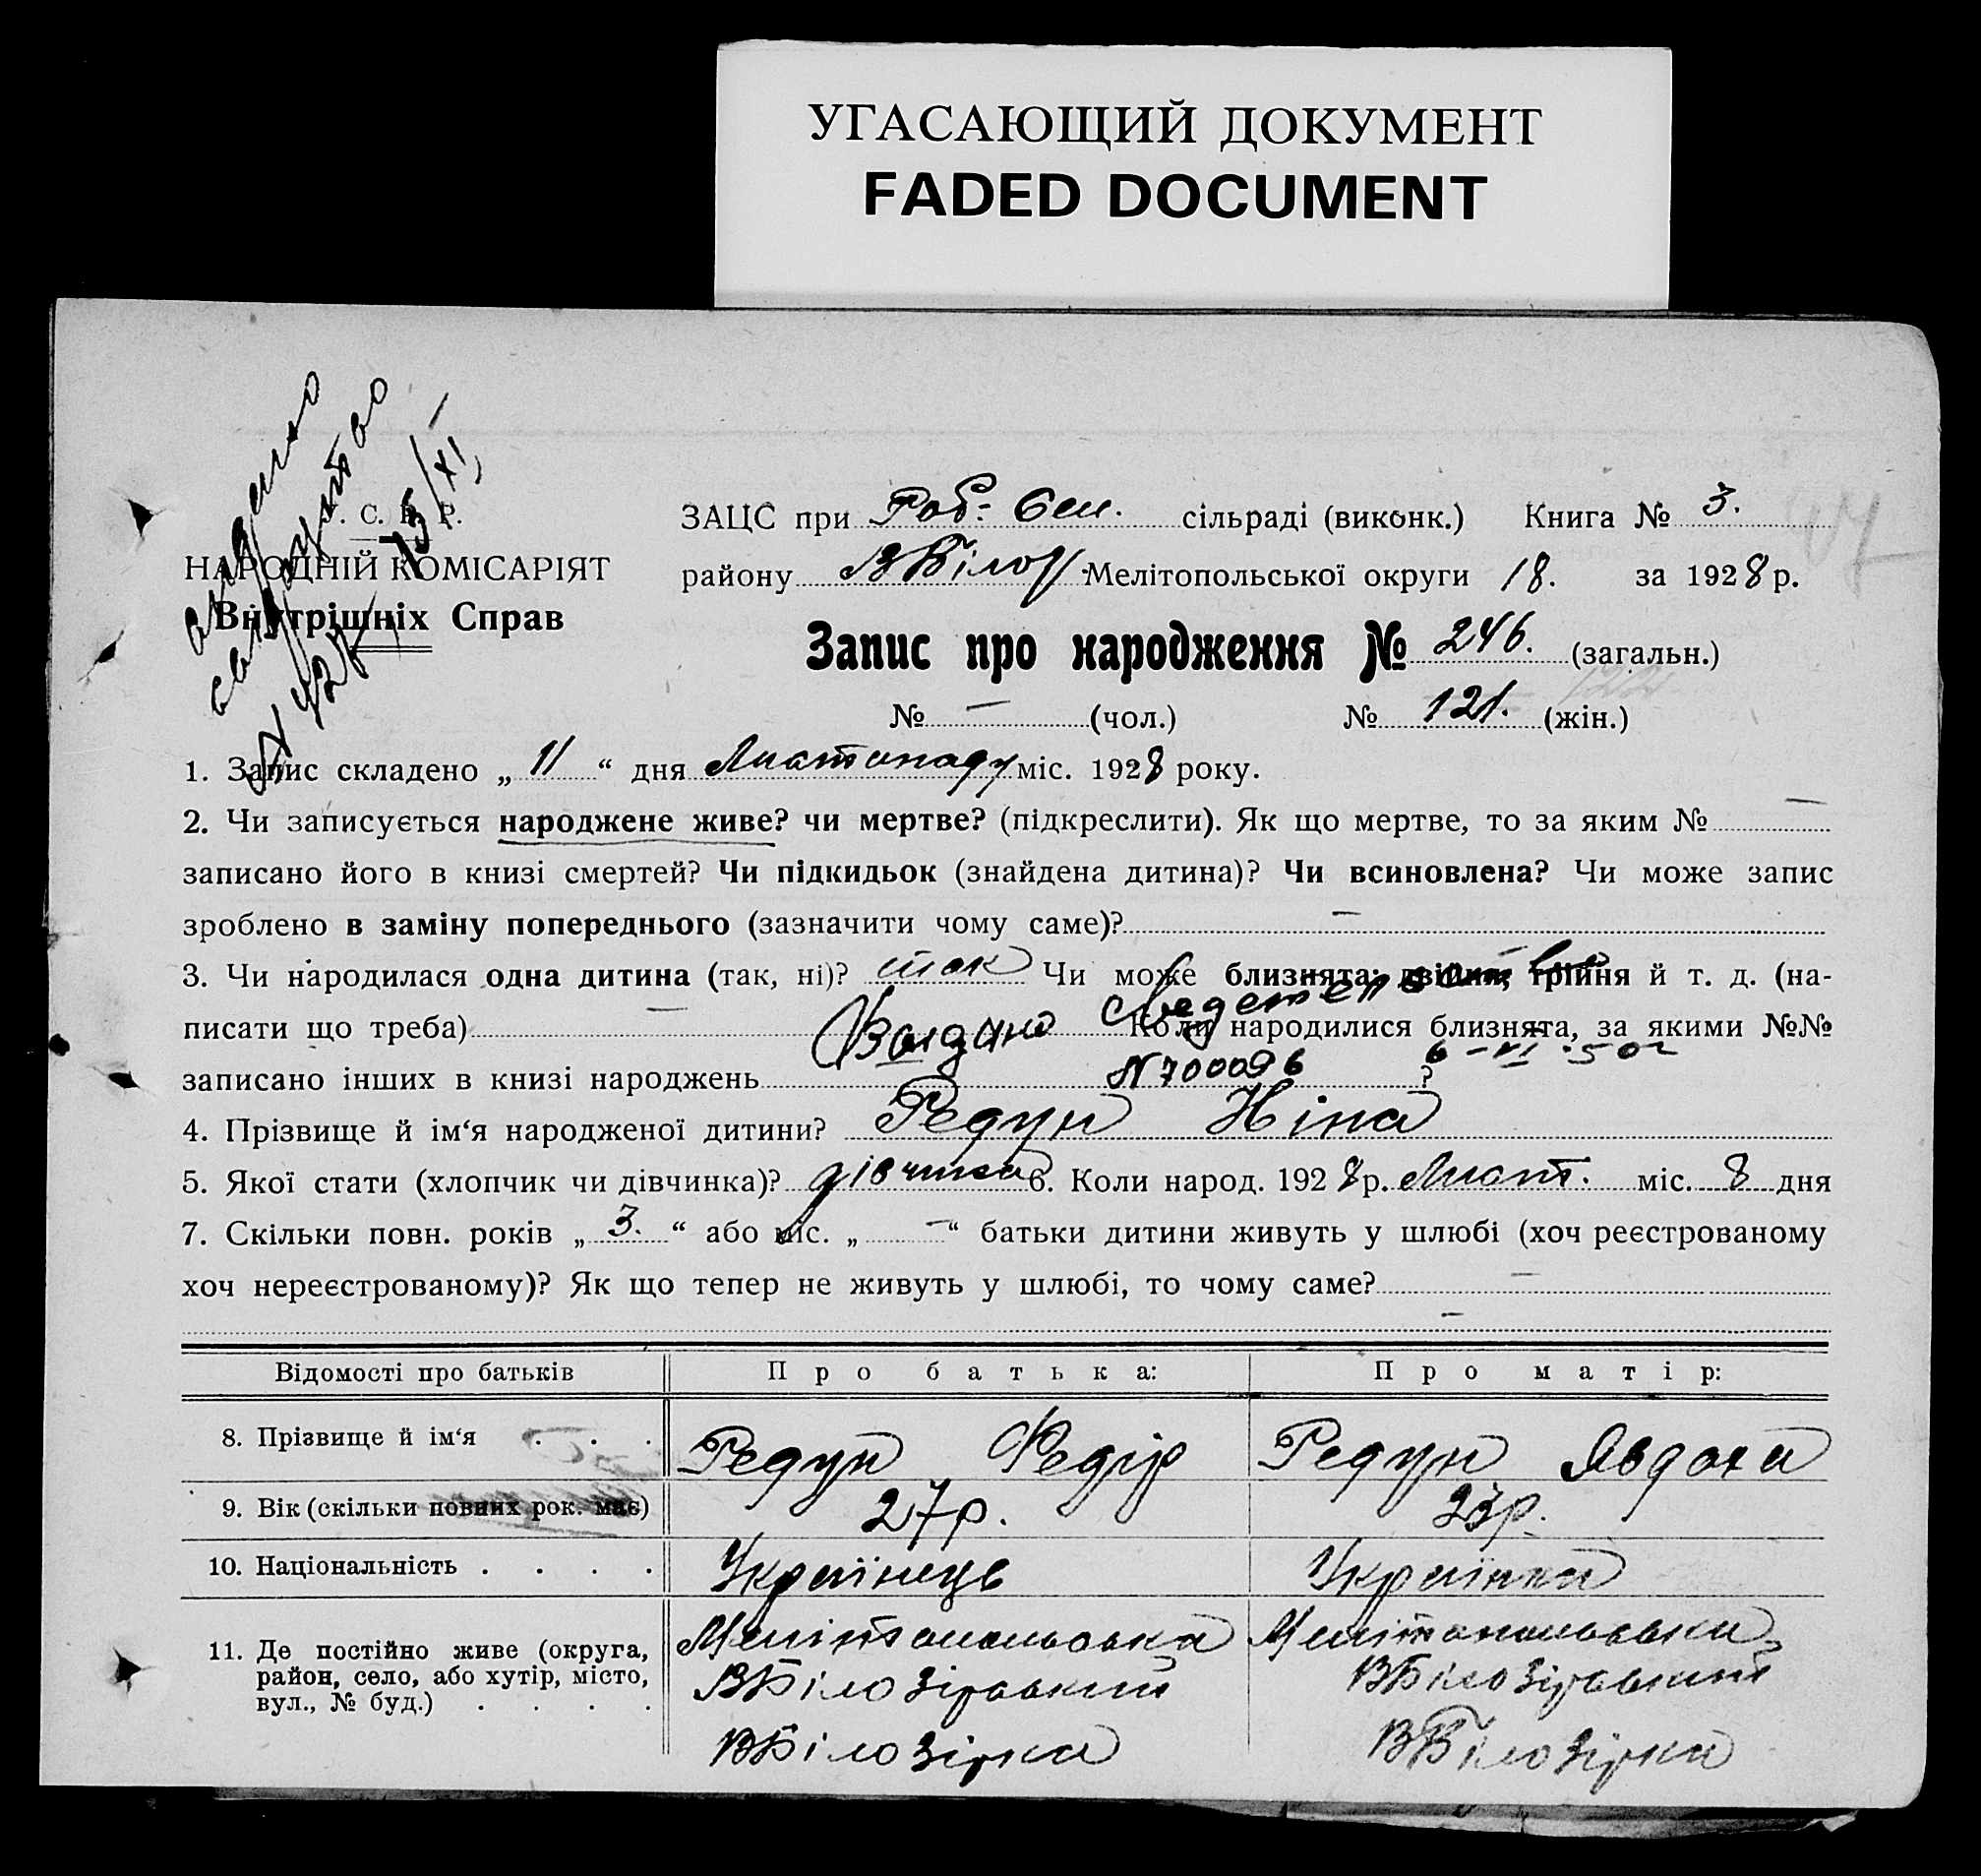 УГАСАЮЩИЙ ДОКУМЕНТ
FADED DOCUMENT
У. С. Р. Р.
НАРОДНІЙ КОМІСАРІЯТ
Внутрішніх Справ
видано
13/XI
ЗАЦС при Роб.- Сел. сільраді (виконк.) Книга № 3.
району ВБілоз. Мелітопольської округи 18. за 1928 р.
Запис про народження № 246. (загальн.)
№ — (чол.) № 121. (жін.)
1. Запис складено „ 11 “ дня Листопаду міс. 1928 року.
2. Чи записується народжене живе? чи мертве? (підкреслити). Як що мертве, то за яким № —
записано його в книзі смертей? Чи підкидьок (знайдена дитина)? Чи всиновлена? Чи може запис
зроблено в заміну попереднього (зазначити чому саме)? —
3. Чи народилася одна дитина (так, ні)? так Чи може близнята: двійні, трійня й т. д. (на-
писати що треба) — Коли народилися близнята, за якими №№
записано інших в книзі народжень ?
Видано свидетельство
N 700096 6-VI-50г
4. Прізвище й ім‘я народженої дитини? Редун Ніна
5. Якої стати (хлопчик чи дівчинка)? дівчинка 6. Коли народ. 1928 р. Лист. міс. 8 дня
7. Скільки повн. років „ 3. “ або міс. „ — “ батьки дитини живуть у шлюбі (хоч реєстрованому
хоч нереєстрованому)? Як що тепер не живуть у шлюбі, то чому саме? —
—
Відомості про батьків Про батька: Про матір:
8. Прізвище й ім‘я . . . Редун Федір Редун Явдоха
9. Вік (скільки повних рок. має) 27р. 23р.
10. Національність . . . . Українець Українка
11. Де постійно живе (округа, район, село, або хутір, місто, вул., № буд.) . . . .
Мелітопольська Мелітопольська
ВБілозірський ВБілозірський
ВБілозірка ВБілозірка